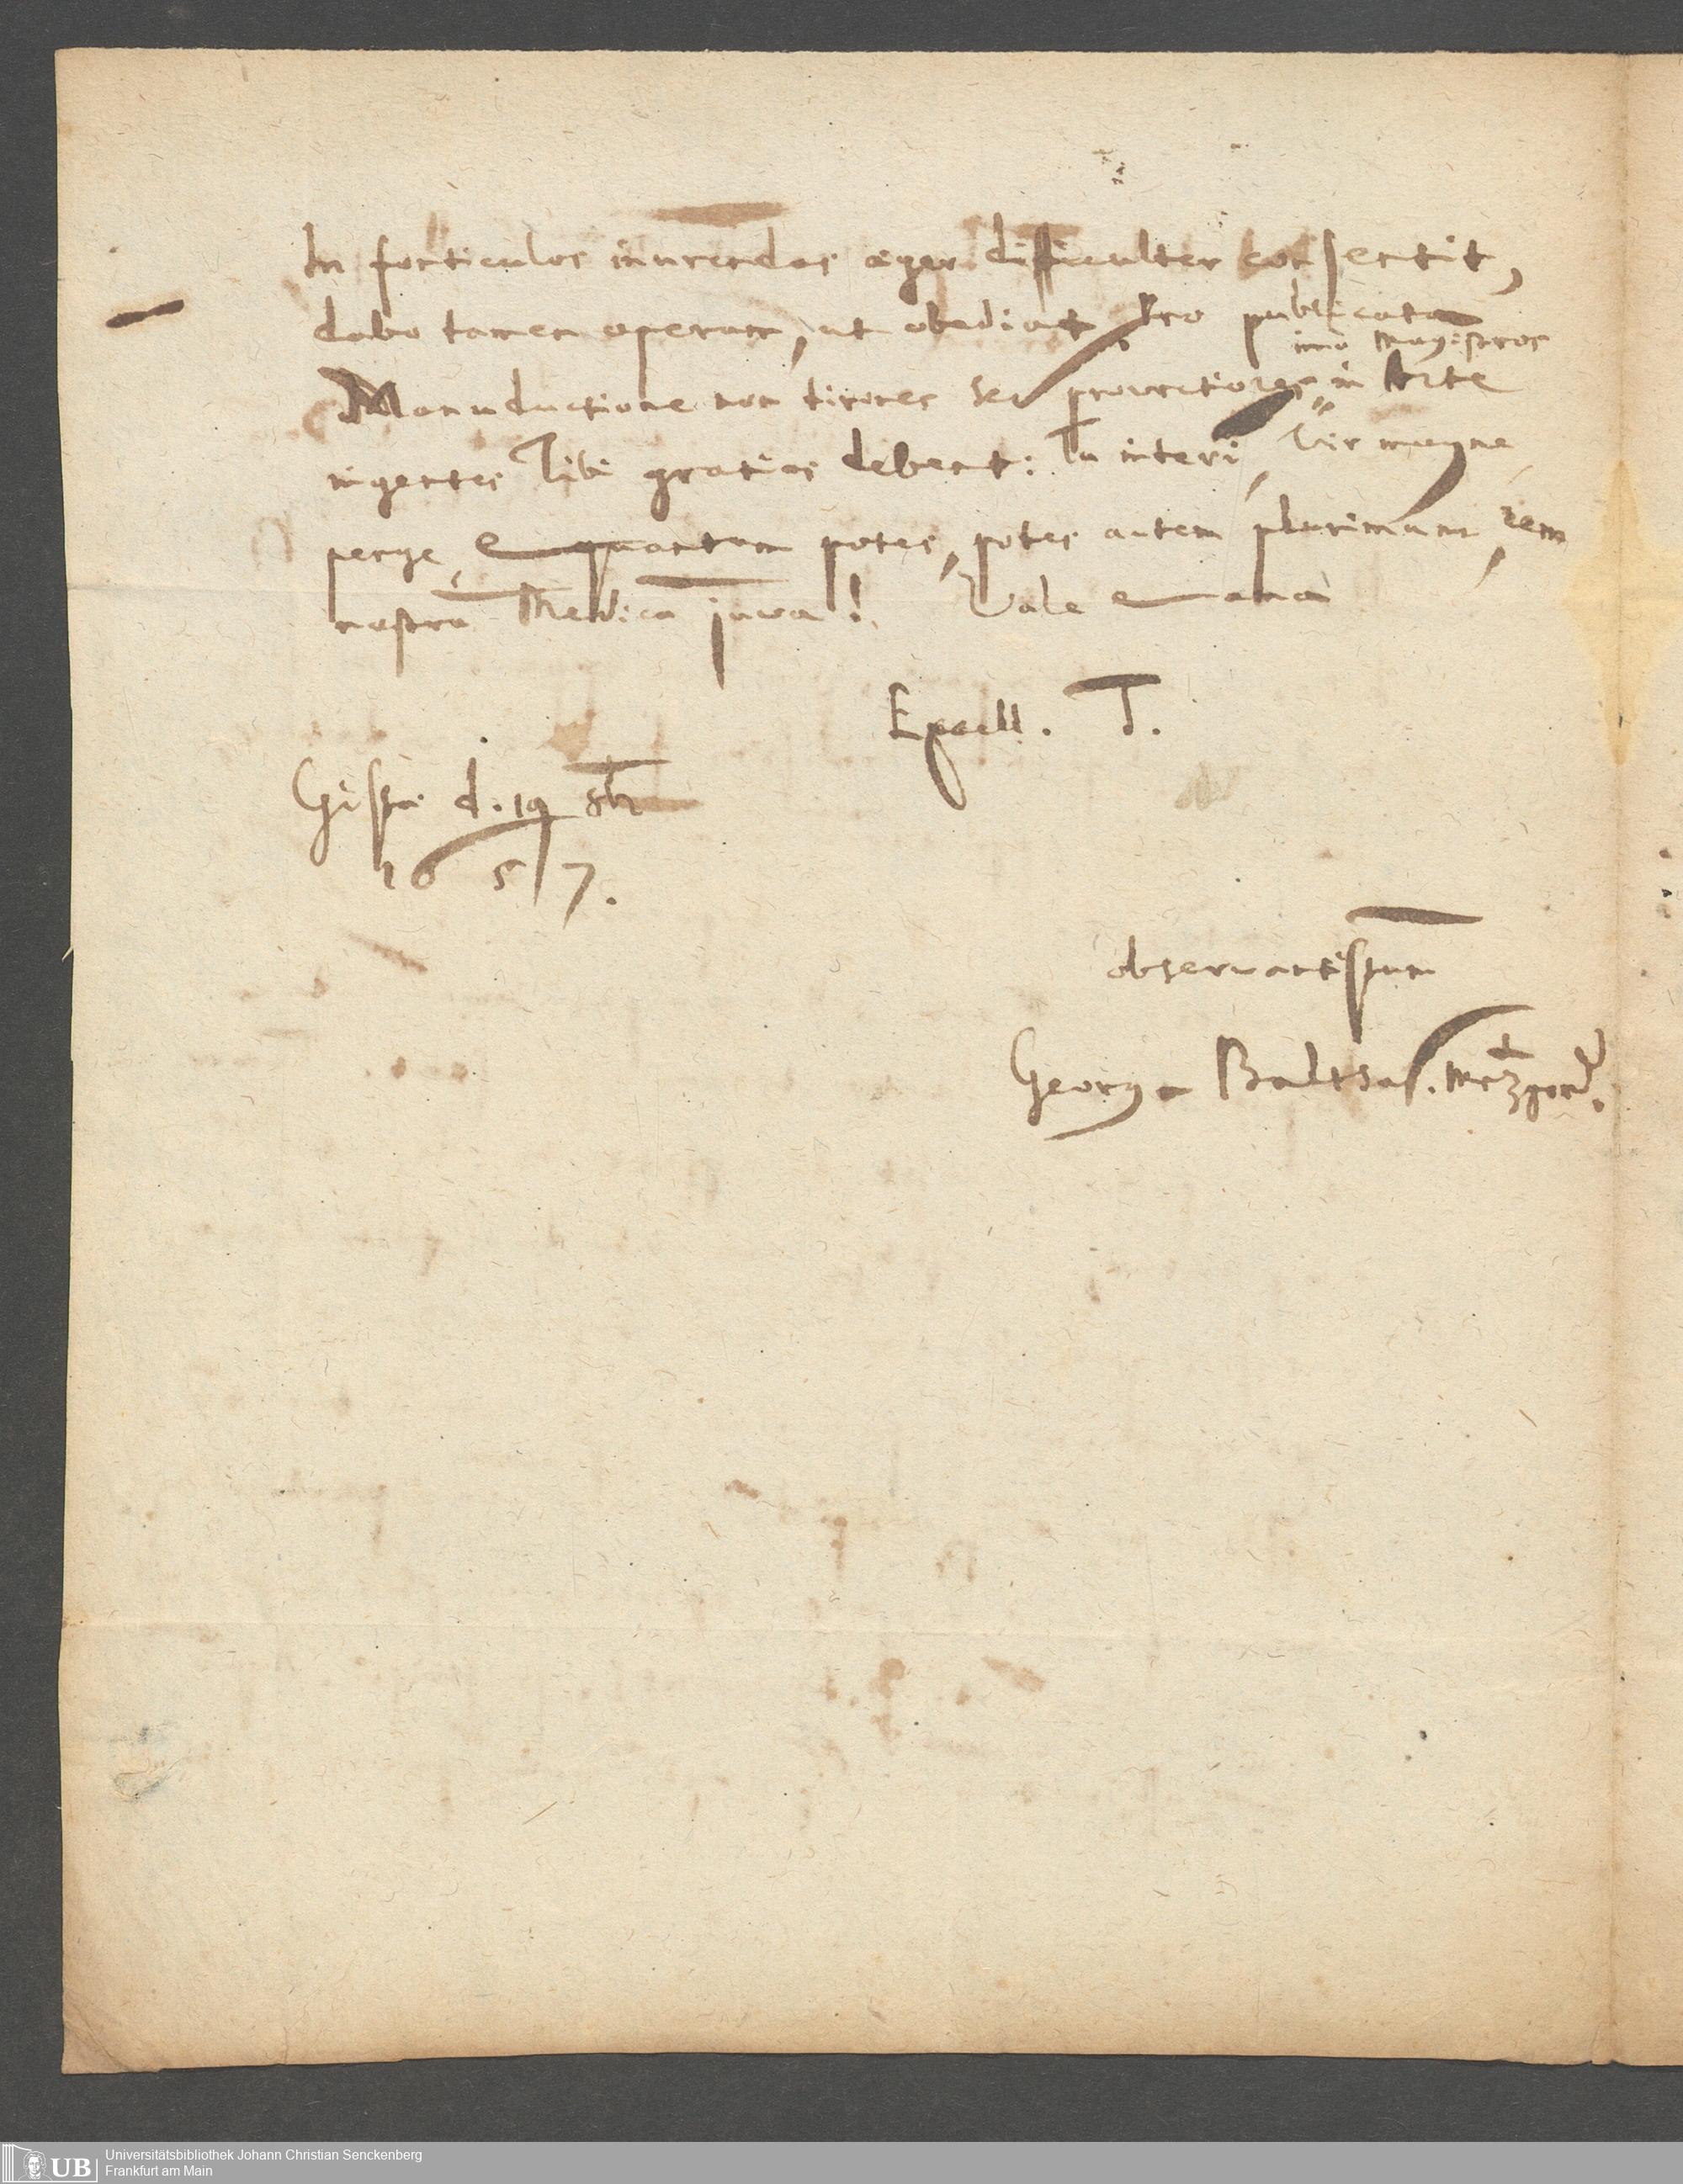 In fonticulos inurendos æger difficulter consentit,
dabo tamen operam, ut obediat. Pro publicata
imo Magistros
Manuductione non tirones sed provectiores in Arte
ingentes Tibi gratias debent: Tu interi, Vir magne
perge, & quantum potes, potes autem plurimum, rem
nostrā Medicā juva! Vale & ama
Excell. T.
d. 19 8br
1657.
observantissimum
Georg. Balthas. Mezger D.
UB Universitätsbibliothek Johann Christian Senckenberg
Frankfurt am Main